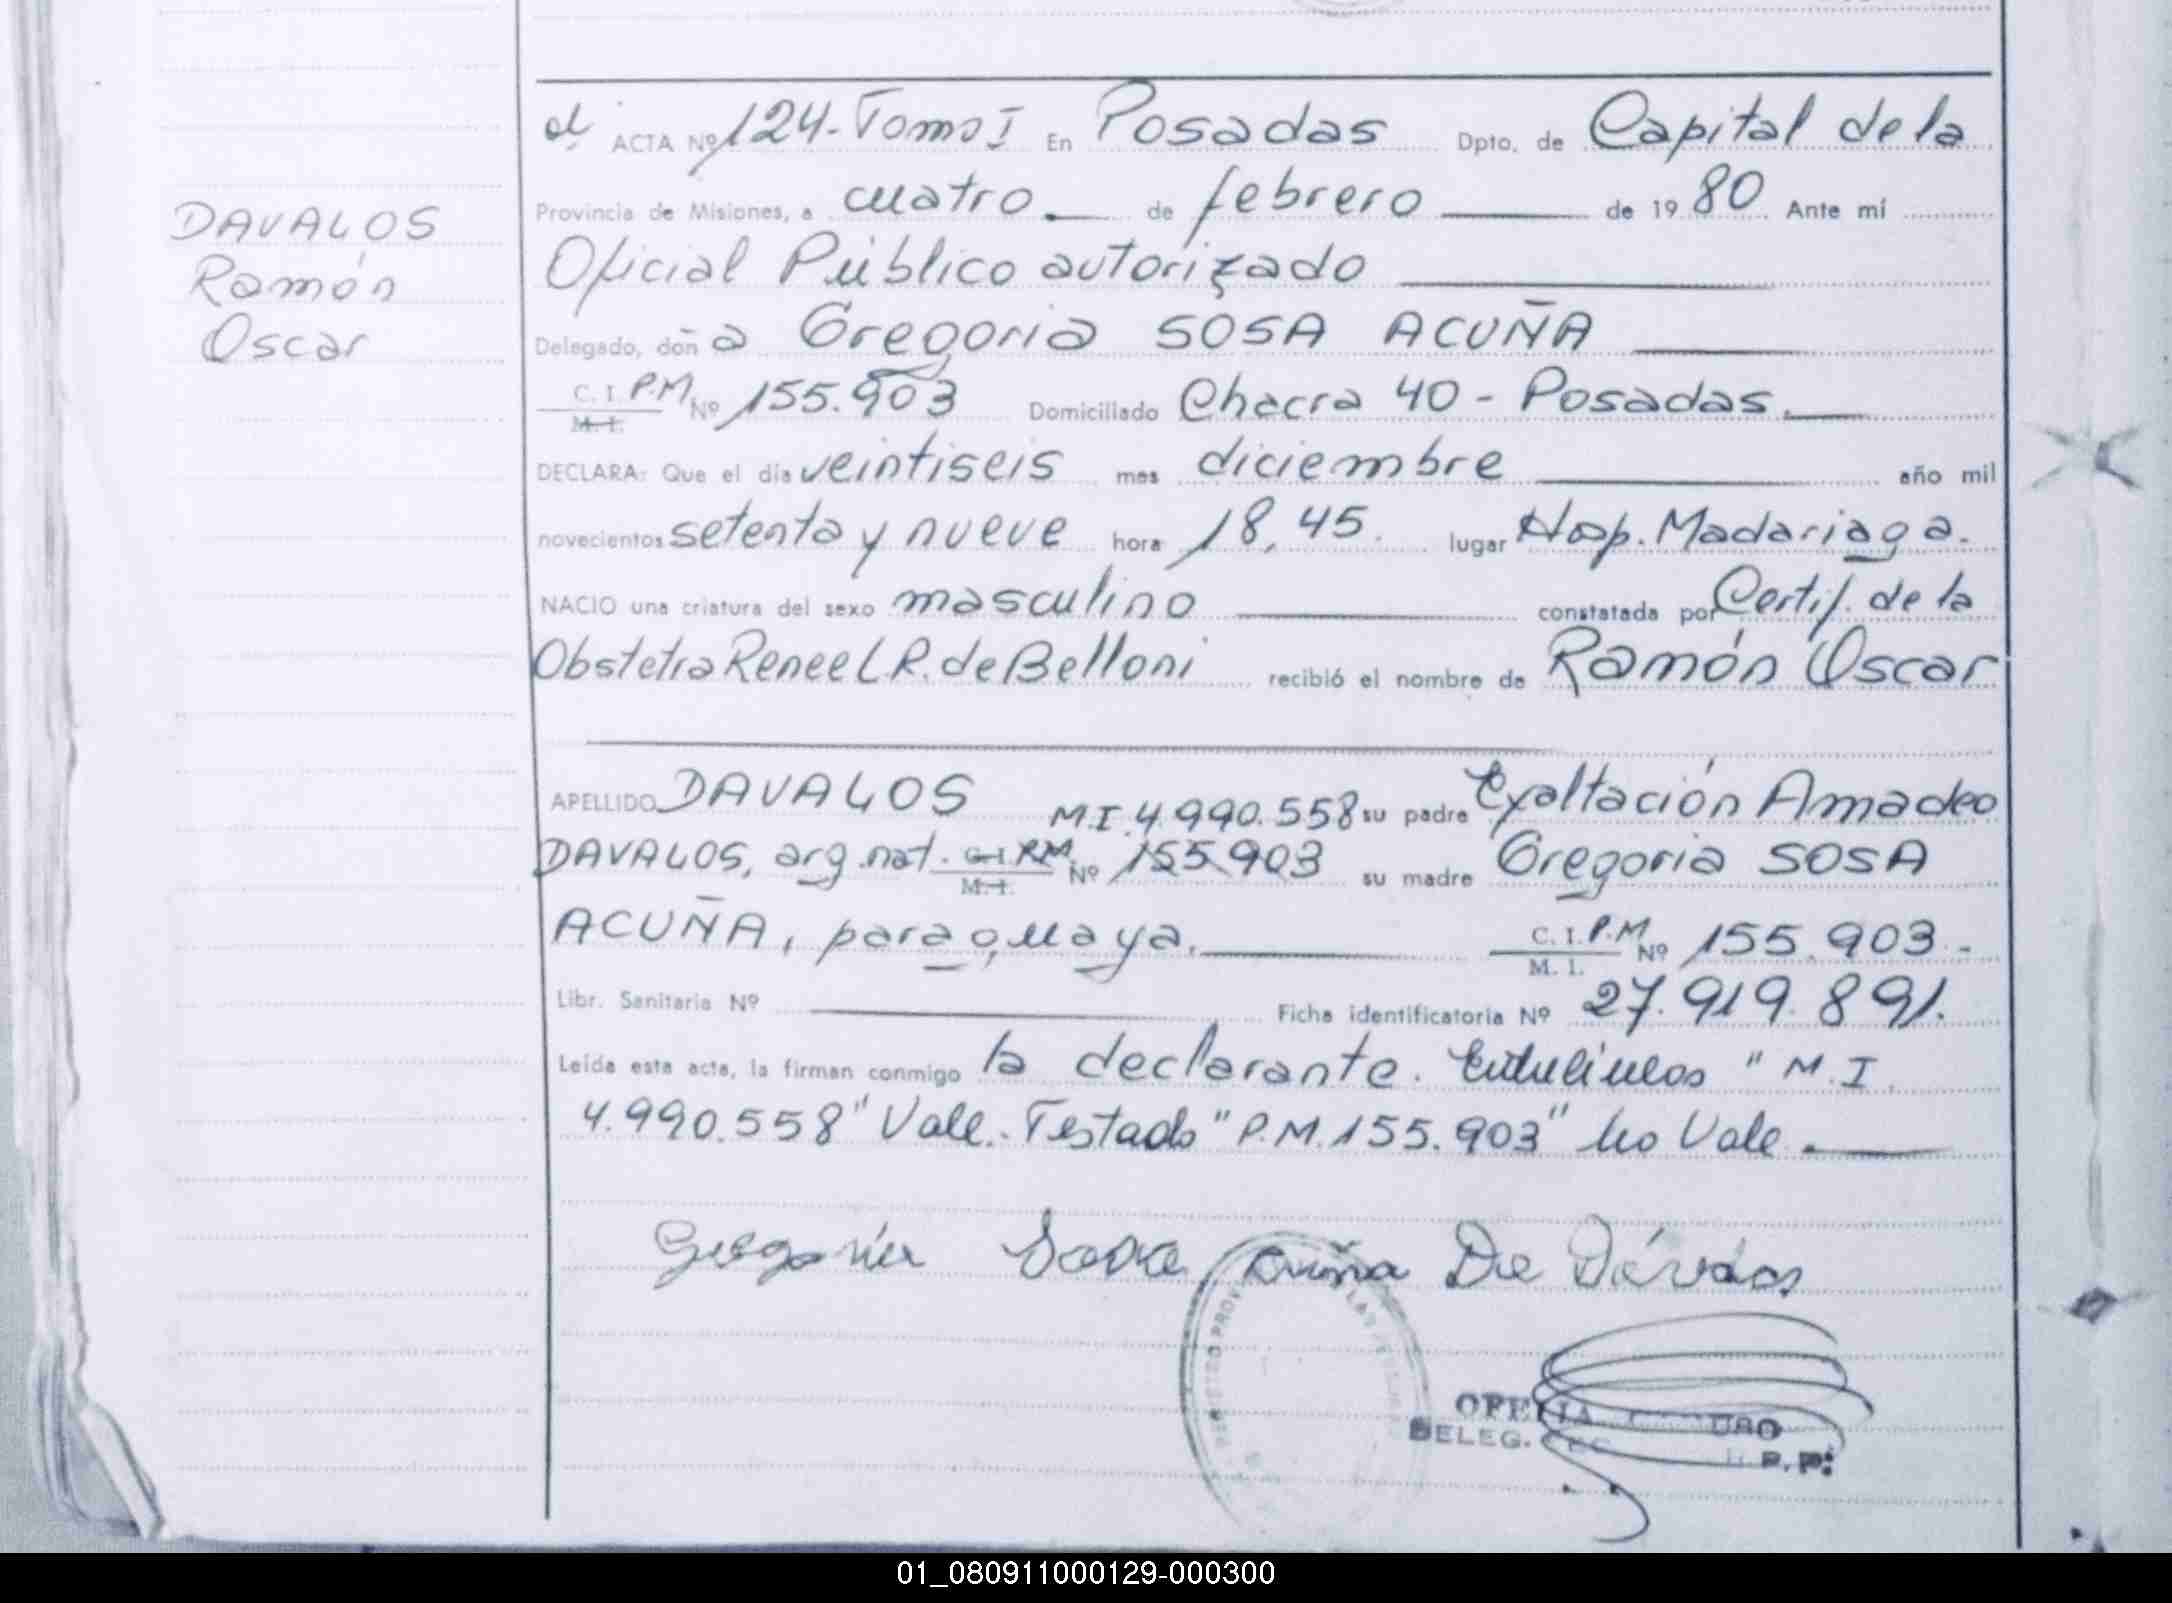 ACTA Nº 124-Tomo I En Posadas Dpto. de Capital de la
Provincia de Misiones, a cuatro de febrero de 1980 Ante mí
DAVALOS
Ramón
Oscar
Oficial Público autorizado
Delegado, doña Gregoria SOSA ACUÑA
C. I. P.M Nº 155.903 Domiciliado Chacra 40 - Posadas.
M. I.
DECLARA: Que el día veintiseis mes diciembre año mil
novecientos setenta y nueve hora 18,45. lugar Hosp. Madariaga.
NACIO una criatura del sexo masculino constatada por Certif. de la
Obstetra Renee L.R. de Belloni recibió el nombre de Ramón Oscar
APELLIDO DAVALOS M.I. 4.990.558 su padre Exaltación Amadeo
DAVALOS, arg. nat. C.I. P.M. Nº 155.903 su madre Gregoria SOSA
M. I.
ACUÑA, paraguaya. C. I. P.M Nº 155.903.-
M. I.
Libr. Sanitaria Nº Ficha identificatoria Nº 27.919.891.
Leída esta acta, la firman conmigo la declarante. Entrelíneas "M.I.
4.990.558" Vale.- Testado "P.M. 155.903" No Vale.
Gregoria Sosa Acuña De Dávalos
DELEG.
P. P.
01_080911000129-000300